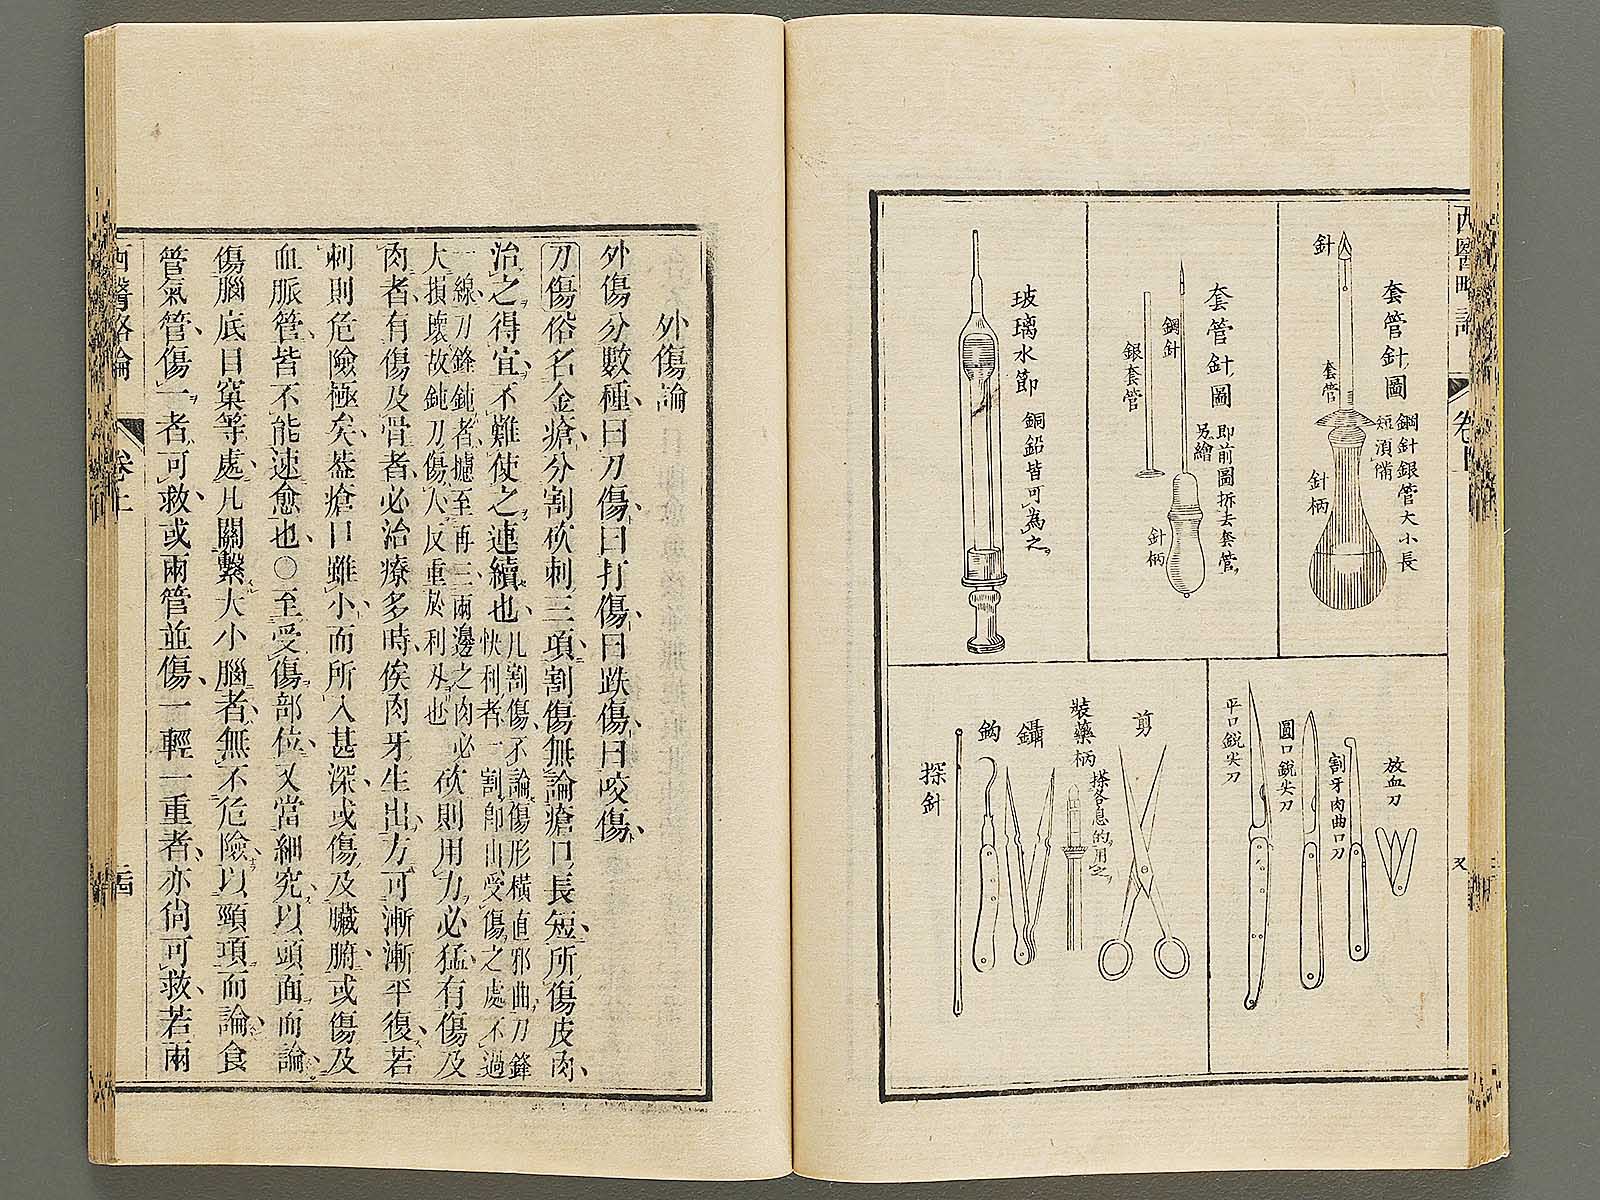 西醫略論
卷上
針
套管
針柄
套管針圖
鋼針銀管大小長
短須備
套管針圖
即前圖拆去套管
另繪
鋼針
銀套管
針柄
玻璃水節
銅鉛皆可為之
放血刀
割牙肉曲口刀
圓口銳尖刀
平口銳尖刀
剪
裝藥柄
搽各息的用之
鑷
鈎
探針
外傷論
外傷分數種曰刀傷曰打傷曰跌傷曰咬傷
刀傷俗名金瘡分割砍刺三項割傷無論瘡口長短所傷皮肉
治之得宜不難使之連續也凡割傷不論傷形橫直邪曲刀鋒快利者一割即出受傷之處不過
一線刀鋒鈍者攎至再三兩邊之肉必大損壞故鈍刀傷人反重於利刃也砍則用力必猛有傷及
肉者有傷及骨者必治療多時俟肉牙生出方可漸漸平復若
刺則危險極矣葢瘡口雖小而所入甚深或傷及臟腑或傷及
血脈管皆不能速愈也○至受傷部位又當細究以頭面而論
傷腦底目窠等處凡關繫大小腦者無不危險以頸項而論食
管氣管傷一者可救或兩管並傷一輕一重者亦尚可救若兩
西醫略論
卷上